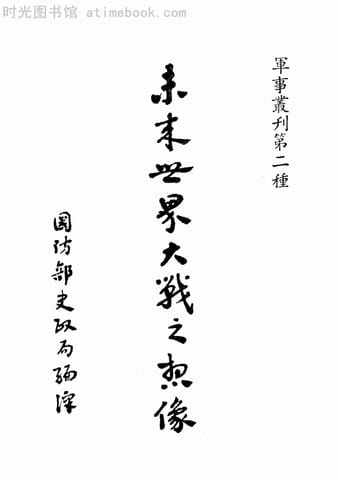 时光图书馆 atimebook.com
軍事叢刊第二種
未来世界大戰之想像
國防部史政局編譯